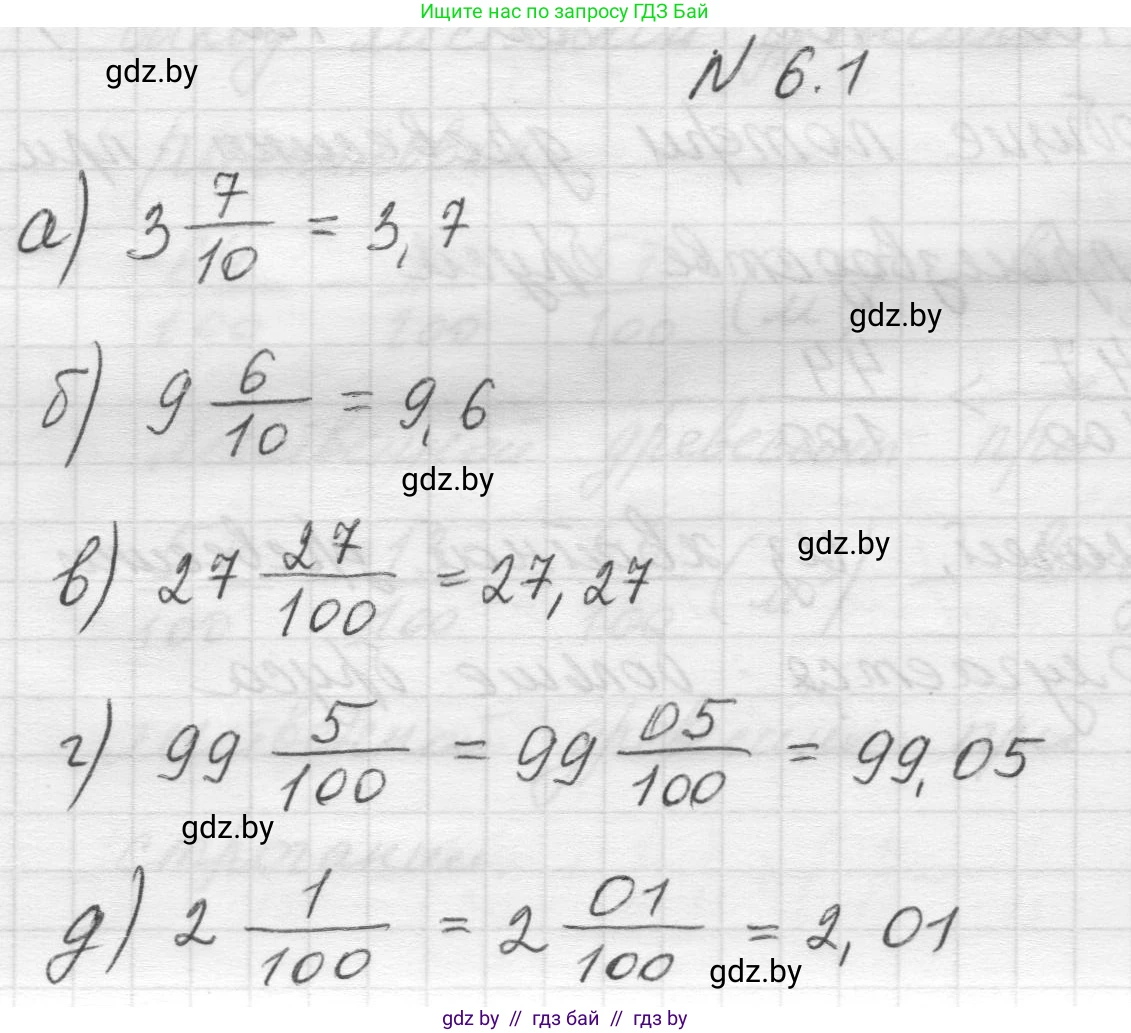 Ищите нас по запросу ГДЗ Бай
gdz.by
N 6.1
а) 3 7/10 = 3,7
gdz.by
б) 9 6/10 = 9,6
gdz.by
gdz.by
в) 27 27/100 = 27,27
г) 99 5/100 = 99 05/100 = 99,05
gdz.by
д) 2 1/100 = 2 01/100 = 2,01
gdz.by
gdz by // гдз бай // gdz by